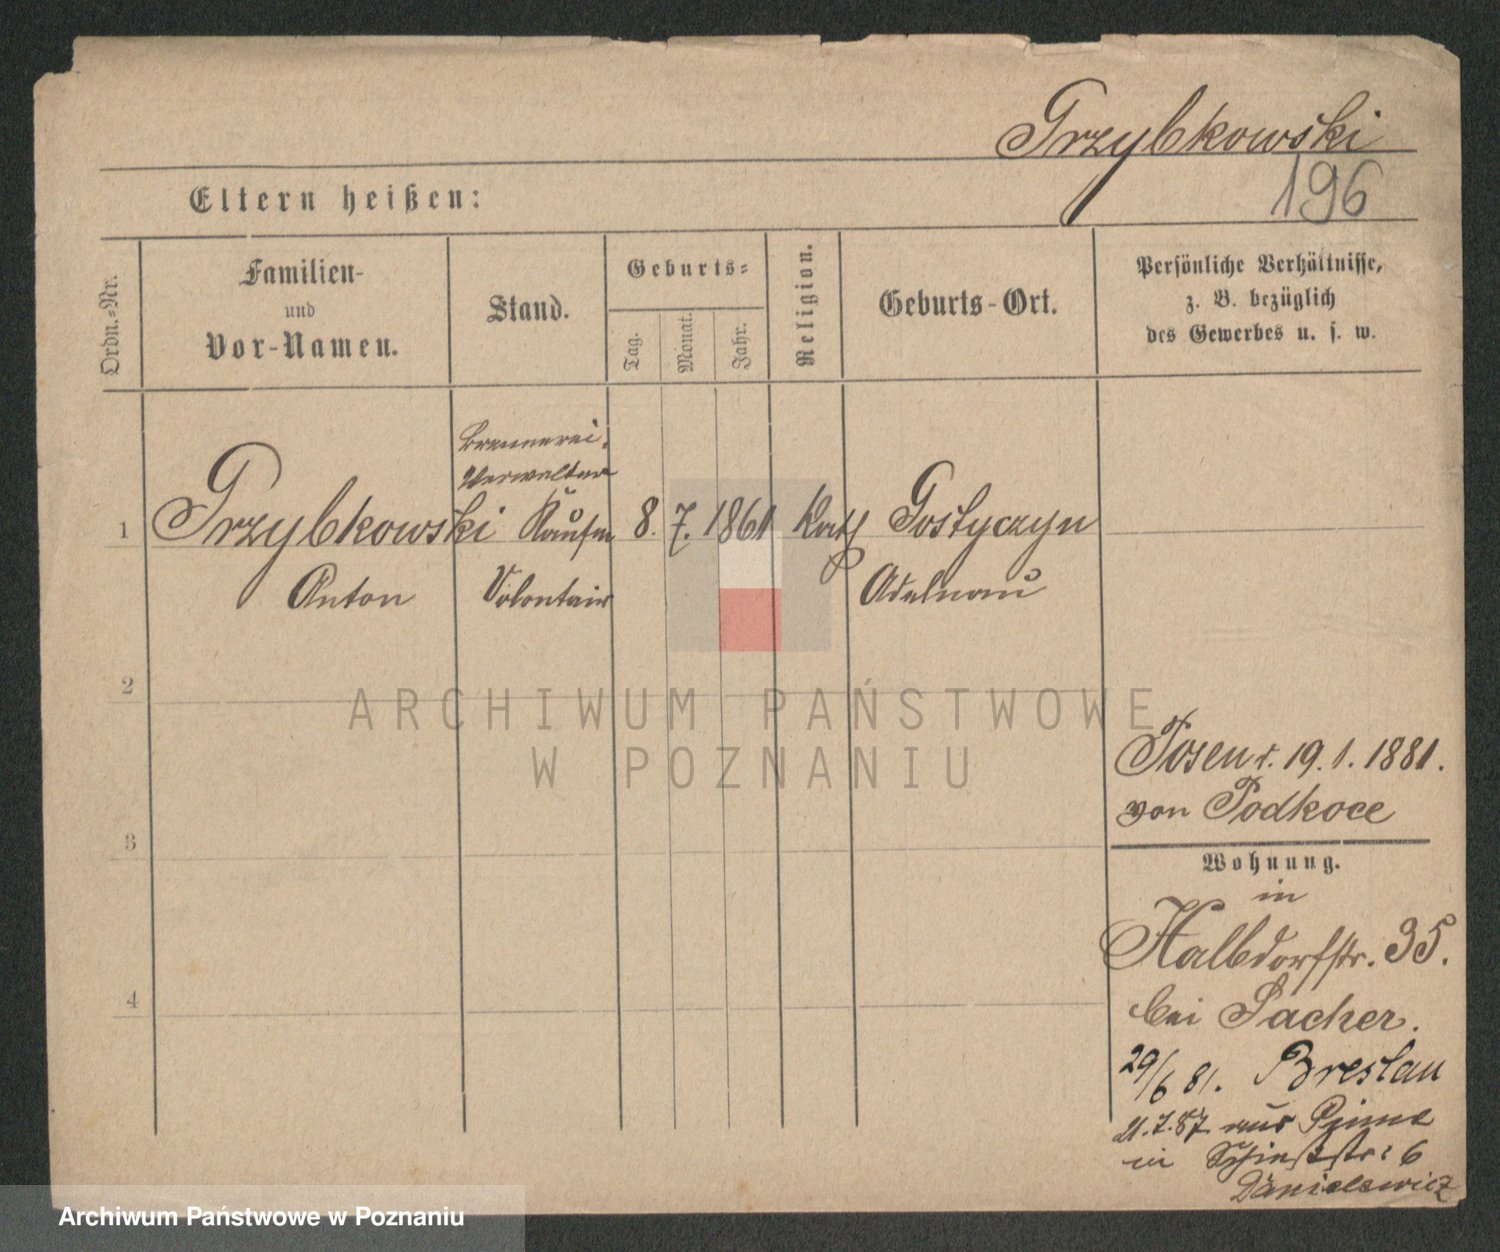 Przybkowski
196
Eltern heißen:
Ordn.-Nr.
Familien-
und
Vor-Namen.
Stand.
Geburts-
Tag.
Monat.
Jahr.
Religion.
Geburts-Ort.
Persönliche Verhältnisse,
z. B. bezüglich
des Gewerbes u. s. w.
Brennerei-
Verwalter
1 Przybkowski Kaufm 8. 7. 1861 Kath Gostyczyn
Anton Volontair Adelnau
2
3
4
Posen d. 19. 1. 1881.
von Podkoce
Wohnung.
in
Halbdorfstr. 35.
bei Sacher.
29/6 81. Breslau
21.7.87 aus
in Schießstr: 6
Danielewicz
ARCHIWUM PAŃSTWOWE
W POZNANIU
Archiwum Państwowe w Poznaniu